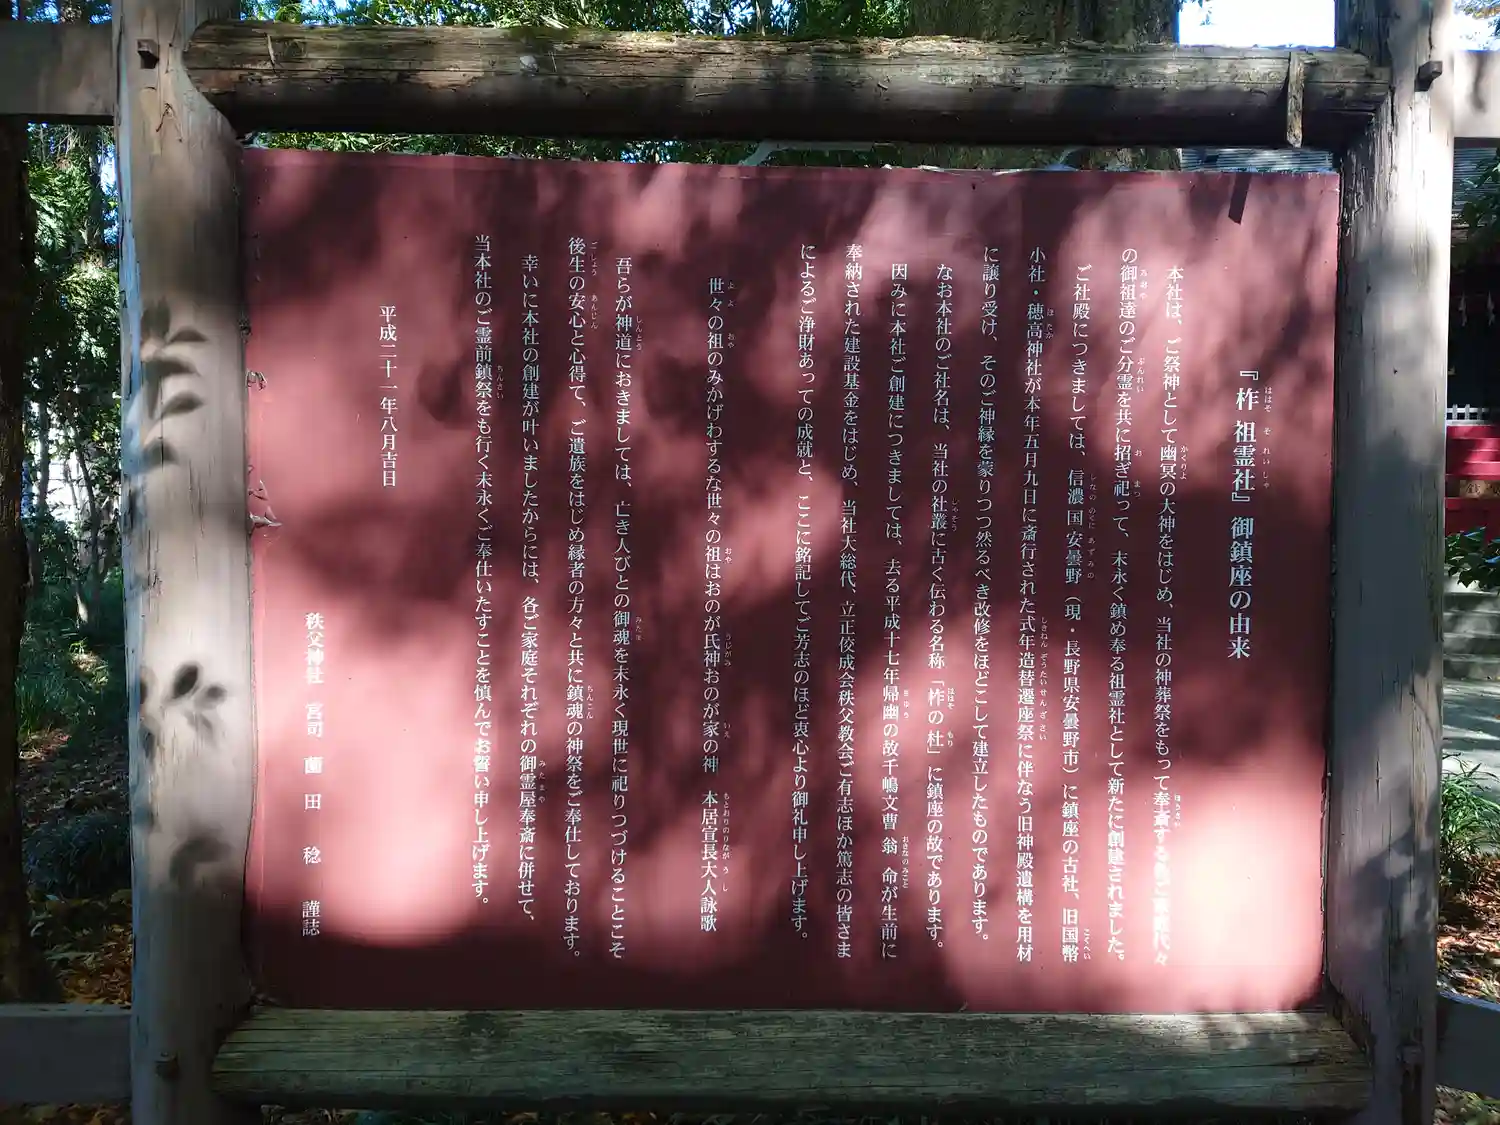 『柞祖霊社』御鎮座の由来
本社は、ご祭神として幽冥の大神をはじめ、当社の神葬祭をもって奉斎する各ご家庭代々
の御祖達のご分霊を共に招ぎ祀って、末永く鎮め奉る祖霊社として新たに創建されました。
ご社殿につきましては、信濃国安曇野（現・長野県安曇野市）に鎮座の古社、旧国幣
小社・穂高神社が本年五月九日に斎行された式年造替遷座祭に伴なう旧神殿遺構を用材
に譲り受け、そのご神縁を蒙りつつ然るべき改修をほどこして建立したものであります。
なお本社のご社名は、当社の社叢に古く伝わる名称「柞の杜」に鎮座の故であります。
因みに本社ご創建につきましては、去る平成十七年帰幽の故千嶋文曹翁命が生前に
奉納された建設基金をはじめ、当社大総代、立正佼成会秩父教会ご有志ほか篤志の皆さま
によるご浄財あっての成就と、ここに銘記してご芳志のほど衷心より御礼申し上げます。
世々の祖のみかげわするな世々の祖はおのが氏神おのが家の神 本居宣長大人詠歌
吾らが神道におきましては、亡き人びとの御魂を末永く現世に祀りつづけることこそ
後生の安心と心得て、ご遺族をはじめ縁者の方々と共に鎮魂の神祭をご奉仕しております。
幸いに本社の創建が叶いましたからには、各ご家庭それぞれの御霊屋奉斎に併せて、
当本社のご霊前鎮祭をも行く末永くご奉仕いたすことを慎んでお誓い申し上げます。
平成二十一年八月吉日
秩父神社 宮司 薗田 稔 謹誌